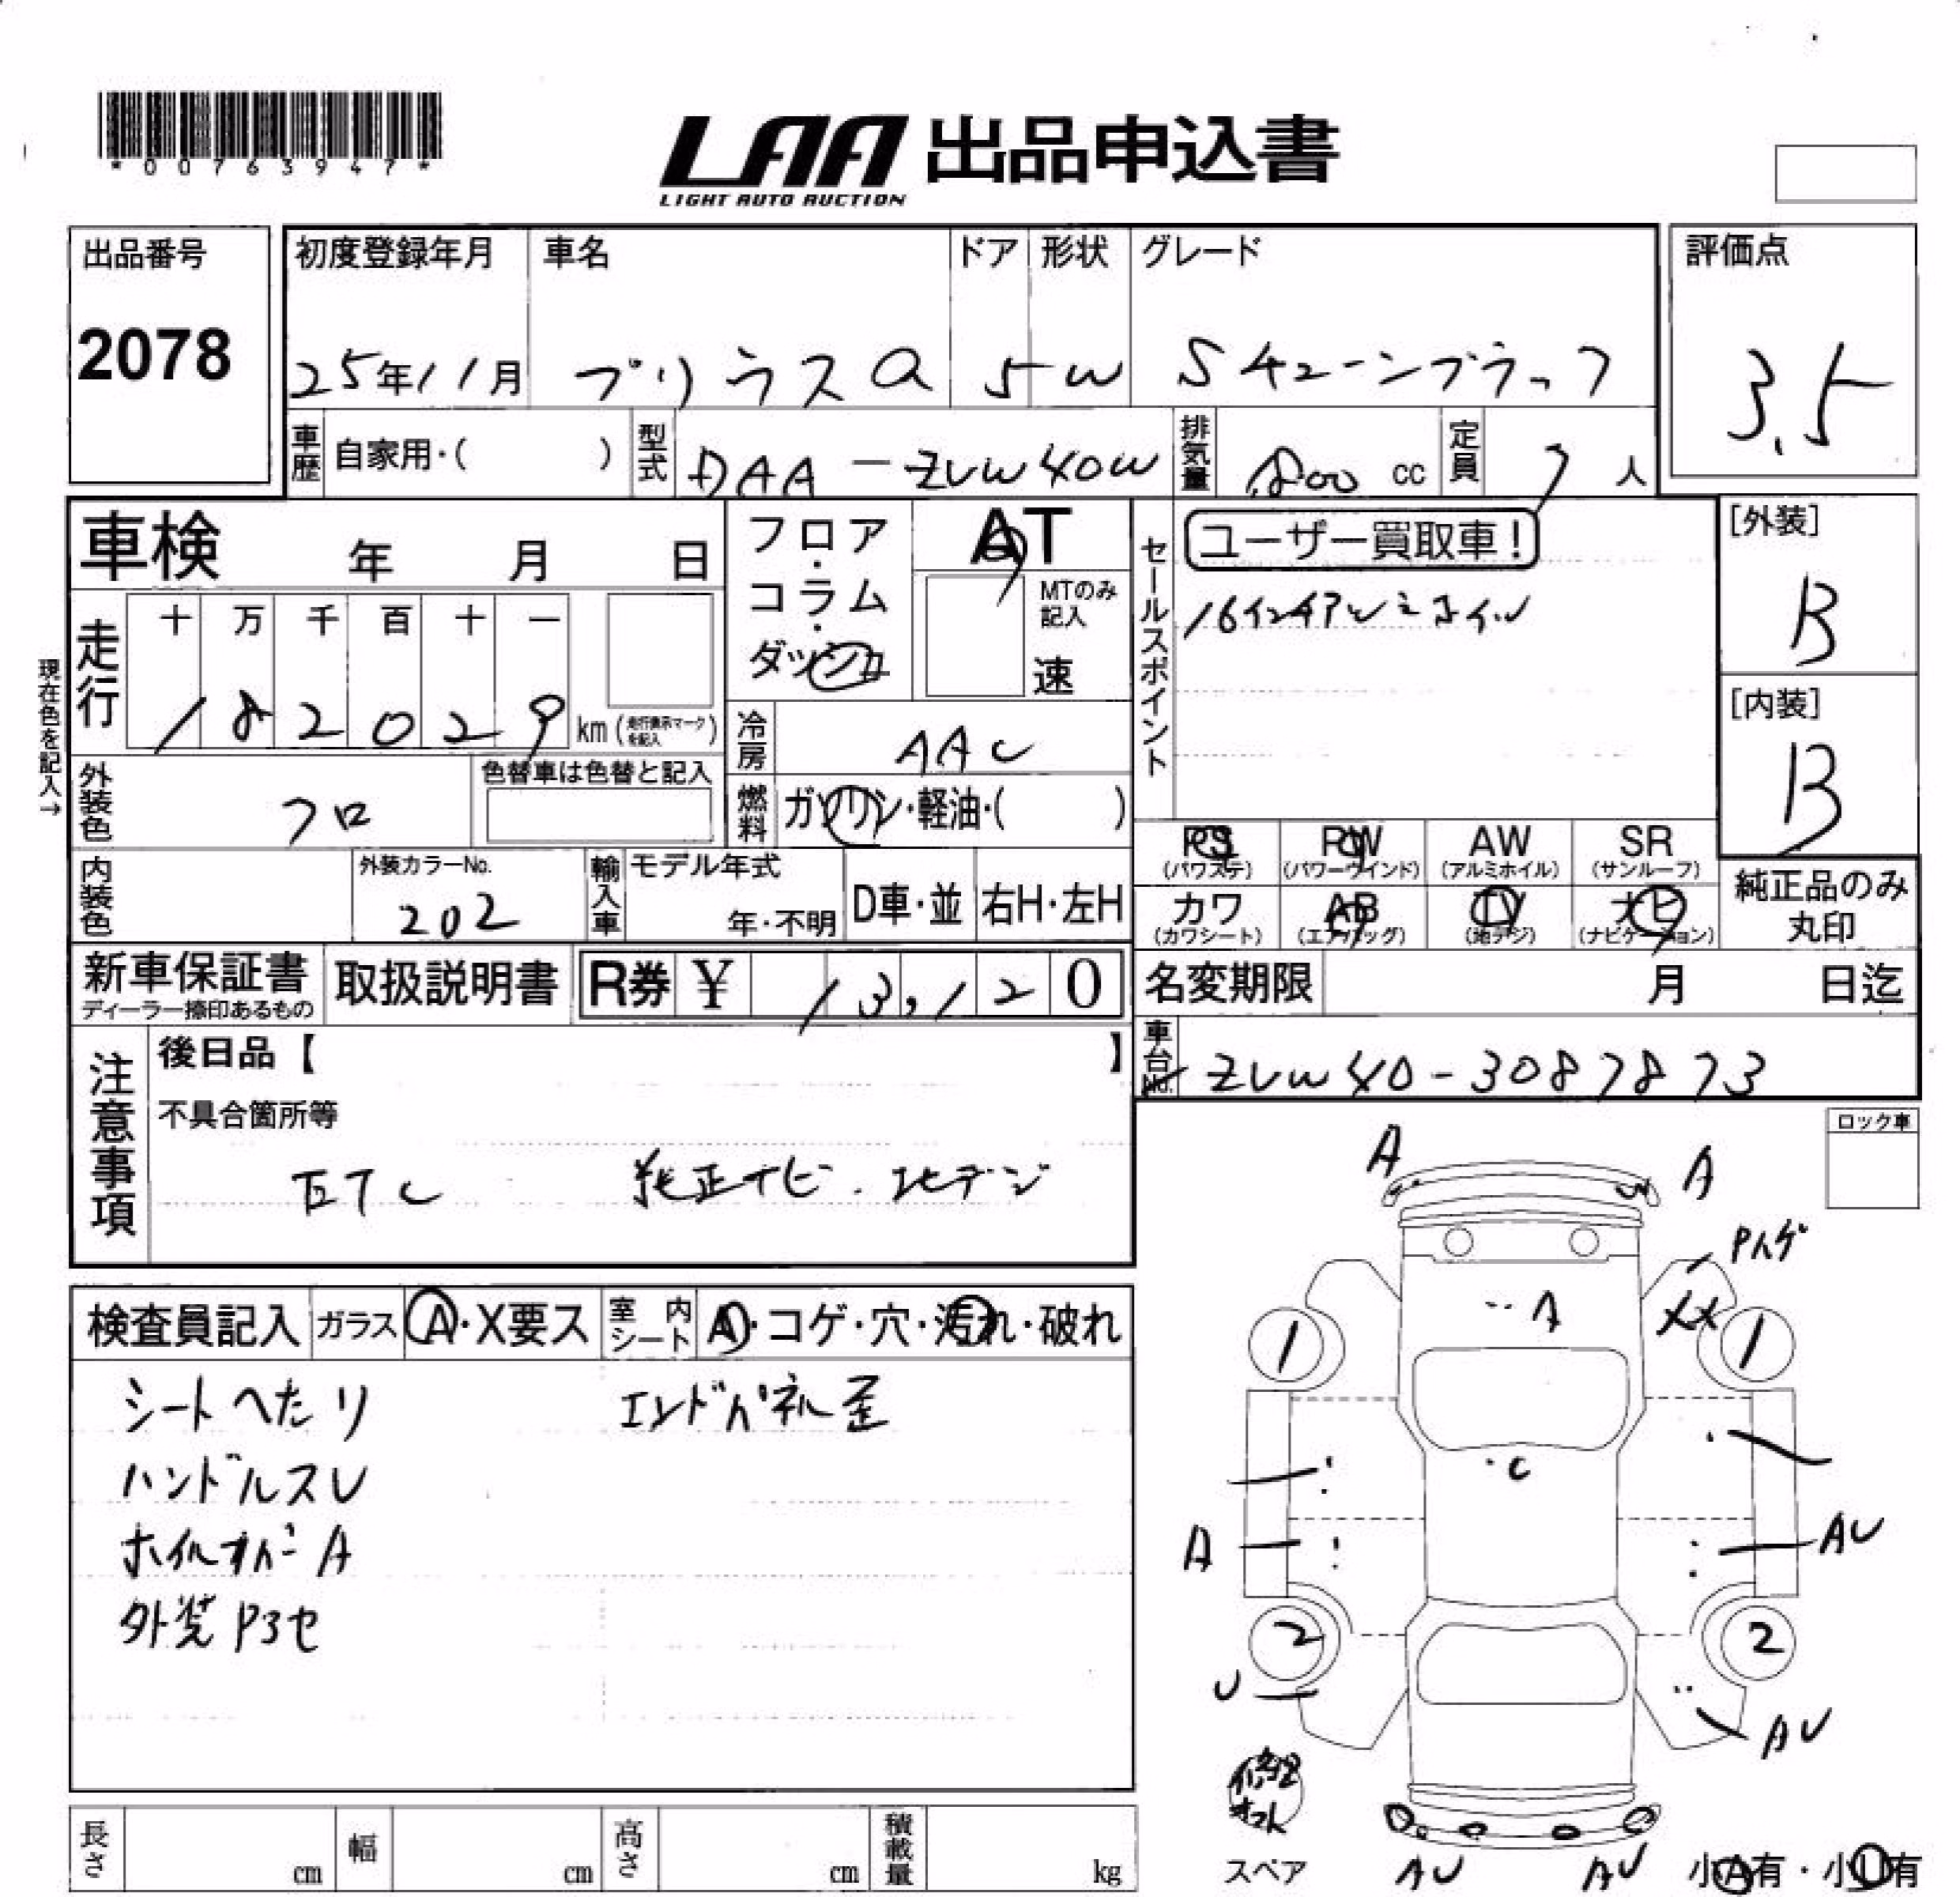 *00763947*
LAA 出品申込書
LIGHT AUTO AUCTION
出品番号
2078
初度登録年月 車名 ドア 形状 グレード
25年11月 プリウスα 5 W Sチューンブラック
評価点
3.5
車歴 自家用・( ) 型式 DAA-ZVW40W 排気量 1800 cc 定員 7人
車検 年 月 日
フロア・コラム・ダッシュ
AT
MTのみ記入
速
セールスポイント
ユーザー買取車!
16インチアルミホイル
[外装]
B
[内装]
B
現在色を記入→
走行 十 万 千 百 十 一
182029 km (走行表示マークを記入)
冷房 AAC
燃料 ガソリン・軽油・( )
外装色 クロ
色替車は色替と記入
内装色
外装カラーNo.
202
輸入車 モデル年式
年・不明
D車・並 右H・左H
PS (パワステ) PW (パワーウインド) AW (アルミホイル) SR (サンルーフ)
カワ (カワシート) AB (エアバッグ) TV (地デジ) ナビ (ナビゲーション)
純正品のみ丸印
新車保証書
ディーラー捺印あるもの
取扱説明書 R券 ¥ 13,120
名変期限 月 日迄
車台No. ZVW40-3087873
注意事項
後日品【 】
不具合箇所等
ETC 純正ナビ・地デジ
ロック車
検査員記入 ガラス A・X要ス 室内シート A・コゲ・穴・汚れ・破れ
シートヘたり エンドパネル歪
ハンドルスレ
ホイルカバーA
外装P3セ
A A
Pハゲ
A XX
1 1
C
A AU
2 2
U AU
スペア
AU AU
小A有・小U有
長さ cm 幅 cm 高さ cm 積載量 kg